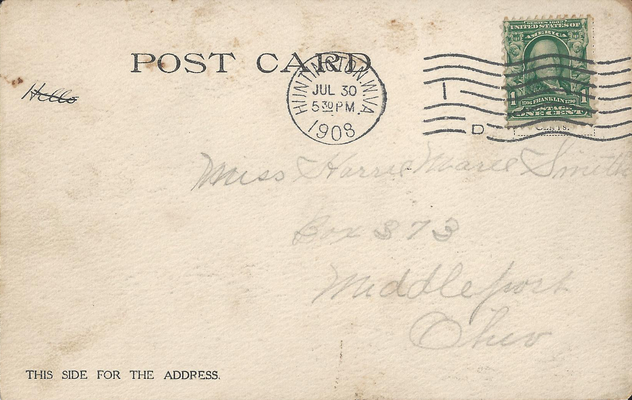 POST CARD
Hello
HUNTINGTON, W.VA.
JUL 30
5 30 PM
1908
1
D
SERIES 1902
UNITED STATES OF
AMERICA
1 FRANKLIN 1
POSTAGE
ONE CENT
Miss Marie Smith
Box 373
Middleport
Ohio
THIS SIDE FOR THE ADDRESS.